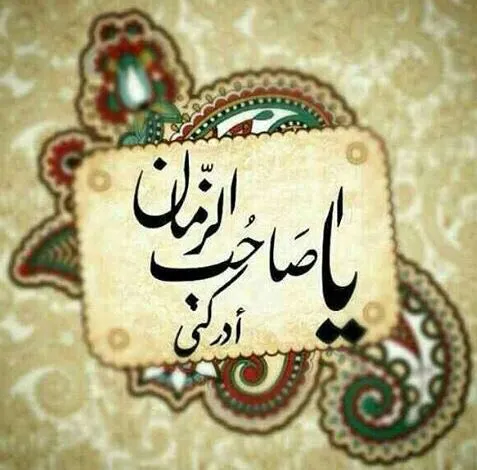 یا صَاحُب الزّمان
أدرکنی